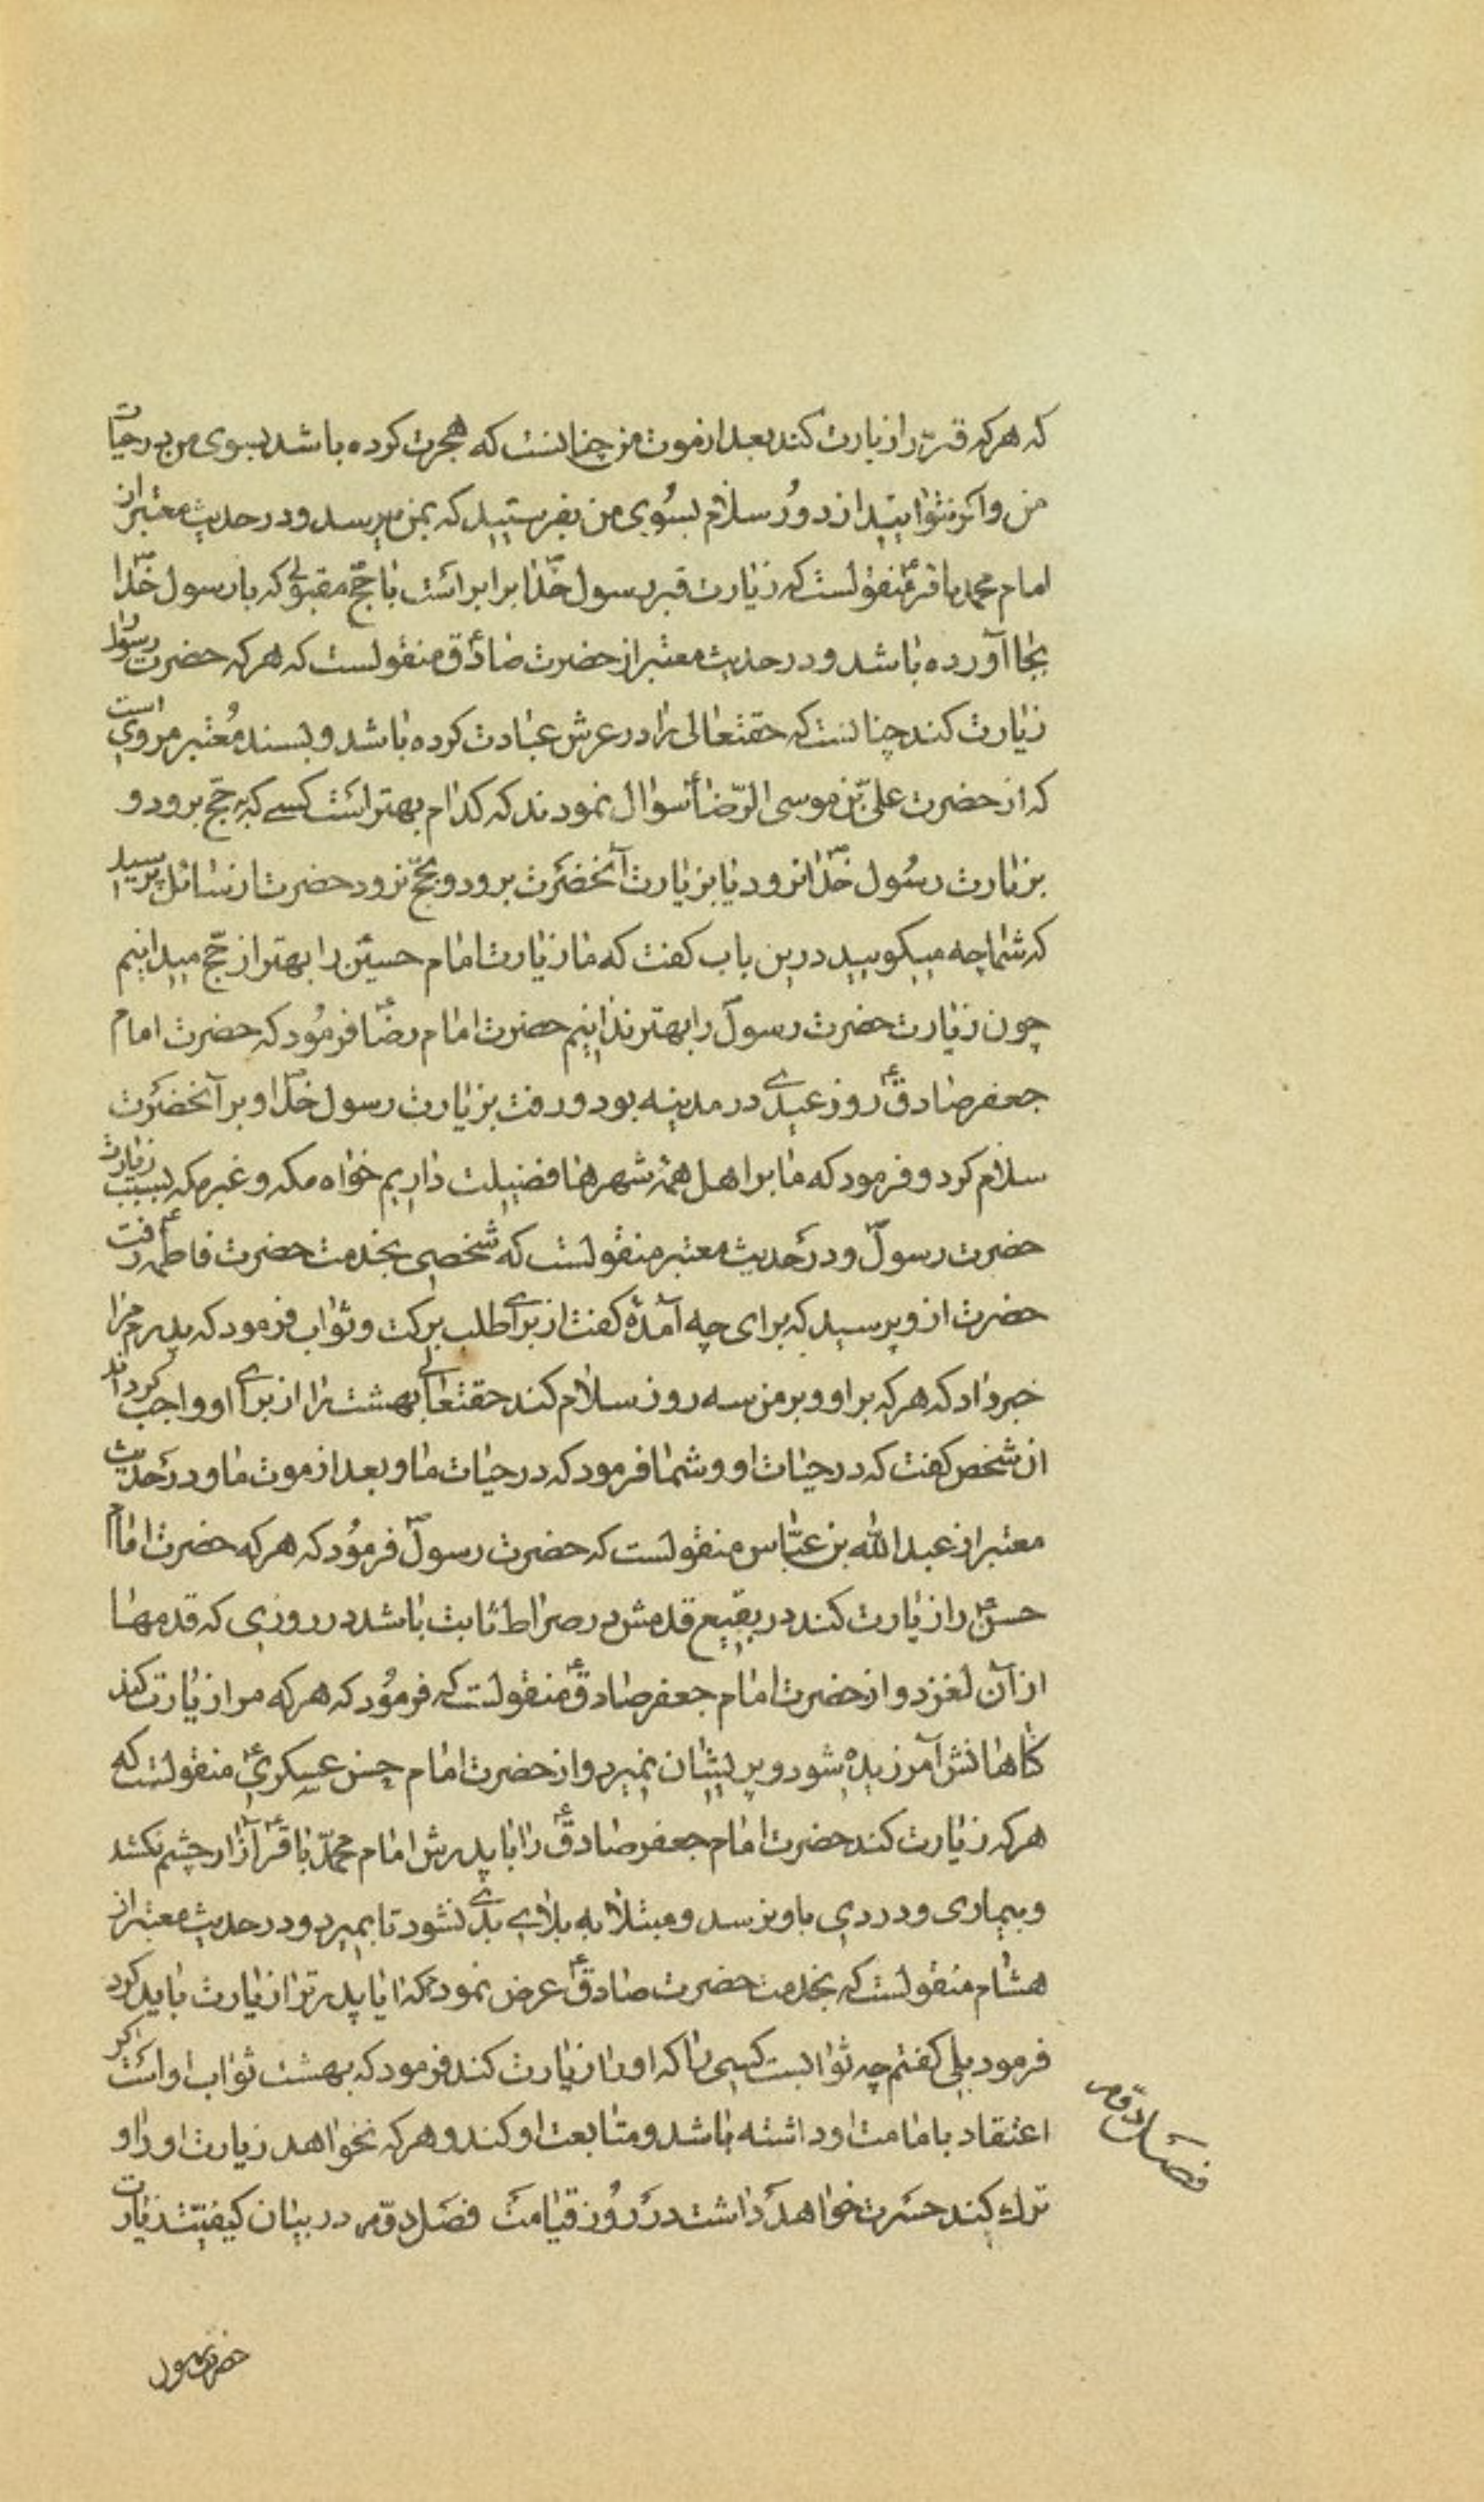 که هرکه قبر مرا زیارت کند بعد از موت من چنانست که هجرت کرده باشد بسوی من در حیات
من واکر نتوانید از دور سلام بسوی من بفرستیید که بمن میرسد و در حدیث معتبر از
امام محمد باقر ع منقولست که زیارت قبر رسول خدا ص برابر است با حج مقبولے که با رسول خدا ص
بجا آورده باشد و در حدیث معتبر از حضرت صادق ع منقولست که هرکه حضرت رسول را
زیارت کند چنانست که حقتعالی را در عرش عبادت کرده باشد و بسند معتبر مروی است
که از حضرت علی بن موسی الرّضا ع سوال نمودند که کدام بهتر است کسے که بحج برود و
بزیارت رسول خدا ص نرود یا بزیارت آنحضرت برود و بحج نرود حضرت از سائل پرسید
که شما چه میکویید درین باب کفت که ما زیارت امام حسین ع را بهتر از حج میدانیم
چون زیارت حضرت رسول ص را بهتر ندانیم حضرت امام رضا ع فرمود که حضرت امام
جعفر صادق ع روز عیدے در مدینه بود و رفت بزیارت رسول خدا ص و بر آنحضرت
سلام کرد و فرمود که ما بر اهل همهٔ شهرها فضیلت داریم خواه مکه و غیر مکه بسبب زیارت
حضرت رسول ص و در حدیث معتبر منقولست که شخصی بخدمت حضرت فاطمه ع رفت
حضرت از و پرسید که برای چه آمدهٔ کفت از براے طلب برکت و ثواب فرمود که پدرم مرا
خبر داد که هرکه بر او و بر من سه روز سلام کند حقتعالی بهشت را از براے او واجب کرداند
ان شخص کفت که در حیات او و شما فرمود که در حیات ما و بعد از موت ما و در حدیث
معتبر از عبد الله بن عبّاس منقولست که حضرت رسول ص فرمود که هرکه حضرت امام
حسن ع را زیارت کند در بقیع قدمش در صراط ثابت باشد در روزی که قدمها
از آن لغزد و از حضرت امام جعفر صادق ع منقولست که فرمود که هرکه مرا زیارت کند
کناهانش آمرزیده شود و پریشان نمیرد و از حضرت امام حسن عسکری ع منقولست که
هرکه زیارت کند حضرت امام جعفر صادق ع را با پدرش امام محمّد باقر ع آزار چشم نکشد
و بیماری و دردی باو نرسد و مبتلا به بلاے بدے نشود تا بمیرد و در حدیث معتبر از
هشام منقولست که بخدمت حضرت صادق ع عرض نمودم که ایا پدر ترا زیارت باید کرد
فرمود بلی کفتم چه ثوابست کسی را که او را زیارت کند فرمود که بهشت ثواب او است اکر
اعتقاد بامامت او داشته باشد و متابعت او کند و هرکه نخواهد زیارت او را و
ترك کند حسرت خواهد داشت در روز قیامت فصل دوّم در بیان کیفیّت زیارت
فصل دوّم
حضرت رسول